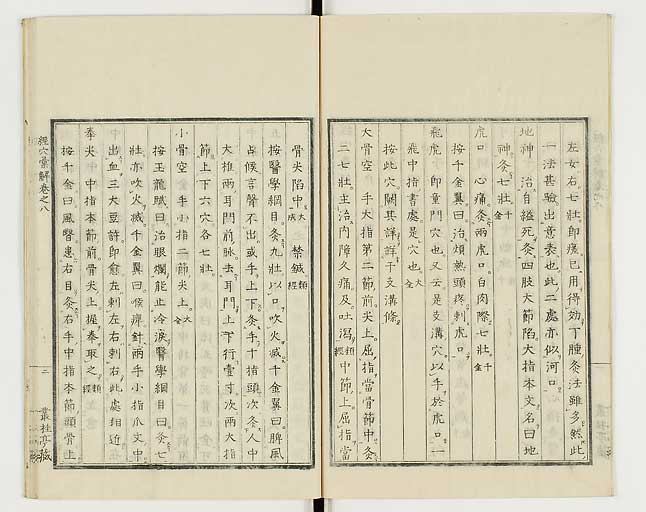 左女右七壯卽瘥已用得効下腫灸法雖多然此
一法甚驗出意表也此二處亦似河口
地神 治自縊死灸四肢大節陷大指本文名曰地
神灸七壯千金
虎口 心痛灸兩虎口白肉際七壯千金
按千金翼曰治煩熱頭疼刺虎口
龍虎 卽童門穴也又云是支溝穴以手於虎口一
飛中指書處是穴也大
按此穴闕其詳詳于支溝條
大骨空 手大指第二節前尖上屈指當骨節中灸
二七壯主治內障久痛及吐瀉類經中節上屈指當
骨尖陷中大成 禁鍼類經
按醫學綱目灸九壯以口吹火滅千金翼曰脾風
占候言聲不出或手上下灸手十指頭次灸人中
大椎兩耳門前脉去耳門上下行壹寸次兩大指
節上下六穴各七壯
小骨空 手小指二節尖上大全
按玉龍賦曰治眼爛能止冷淚醫學綱目曰灸七
壯亦吹火滅千金翼曰喉痹針兩手小指爪文中
出血三大豆許卽愈左刺左右刺右此處相近
拳尖 中指本節前骨尖上握拳取之類經
按千金曰風瞖患右目灸右手中指本節頭骨上
經穴彙解卷之八
三
叢桂亭藏